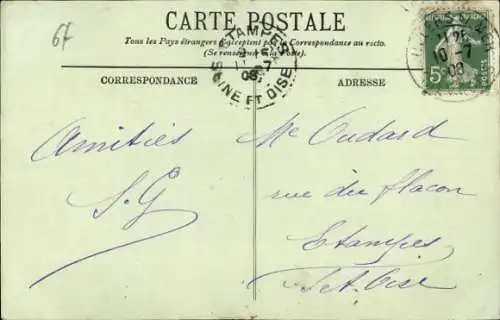 6f
CARTE POSTALE
Tous les Pays étrangers n'acceptent pas la Correspondance au recto.
(Se renseigner à la Poste)
ETAMPES
7
08
SEINE ET OISE
10-7
08
5c
POSTES
CORRESPONDANCE
ADRESSE
Amitiés
S. G
Me Oudard
rue du flacon
Etampes
S et Oise